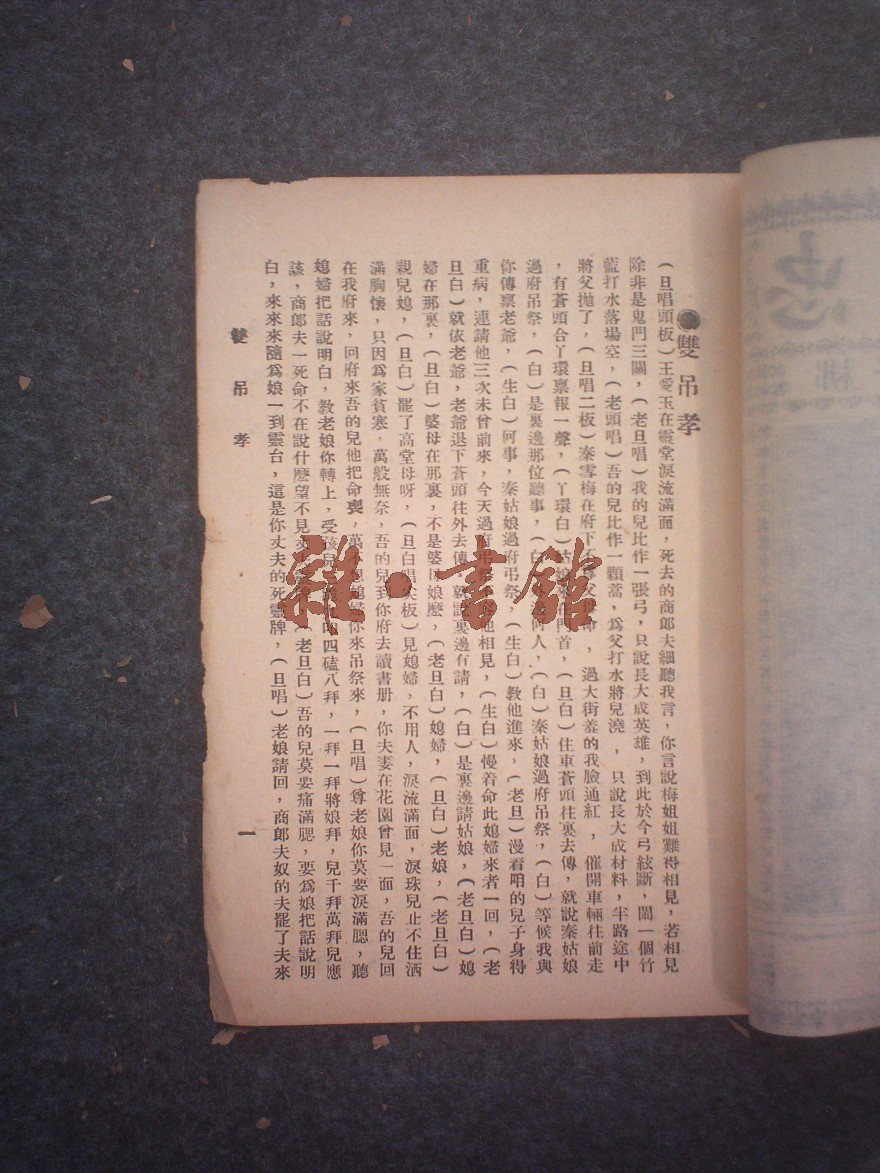 雙吊孝
(旦唱頭板)王愛玉在靈堂淚流滿面，死去的商郎夫細聽我言，你言說梅姐姐難得相見，若相見
除非是鬼門三關，(老旦唱)我的兒比作一張弓，只說長大成英雄，到此於今弓絃斷，鬧一個竹
藍打水落塲空，(老頭唱)吾的兒比作一顆蒿，爲父打水將兒澆，只說長大成材料，半路途中
將父拋了，(旦唱二板)秦雪梅在府下 父 命，過大街羞的我臉通紅，催開車輛往前走
，有蒼頭合丫環禀報一聲，(丫環白)姑娘來在門首，(旦白)住車蒼頭往裏去傳，就說秦姑娘
過府吊祭，(白)是裏邊那位聽事，(白) 何人，(白)秦姑娘過府吊祭，(白)等候我與
你傳禀老爺，(生白)何事，秦姑娘過府弔祭，(生白)教他進來，(老旦)漫着咱的兒子身得
重病，連請他三次未曾前來，今天過府弔祭 他相見，(生白)慢着命此媳婦來者一回，(老
旦白)就依老爺，老爺退下蒼頭往外去傳，就說裏邊有請，(白)是裏邊請姑娘，(老旦白)媳
婦在那裏，(旦白)婆母在那裏，不是婆母娘麽，(老旦白)媳婦，(旦白)老娘，(老旦白)
親兒媳，(旦白)罷了高堂母呀，(旦白唱 板)見媳婦，不用人，淚流滿面，淚珠兒止不住洒
滿胸懷，只因爲家貧寒，萬般無奈，吾的兒到你府去讀書册，你夫妻在花園曾見一面，吾的兒回
在我府來，回府來吾的兒他把命喪，萬不 媳婦你來吊祭來，(旦唱)尊老娘你莫要淚滿腮，聽
媳婦把話說明白，教老娘你轉上，受孩兒 四磕八拜，一拜一拜將娘拜，兒千拜萬拜兒應
該，商郎夫一死命不在說什麽望不見 (老旦白)吾的兒莫要痛滿腮，要爲娘把話說明
白，來來來隨爲娘一到靈台，這是你丈夫的死靈牌，(旦唱)老娘請回，商郎夫奴的夫罷了夫來
雙吊孝
一
雜·書館